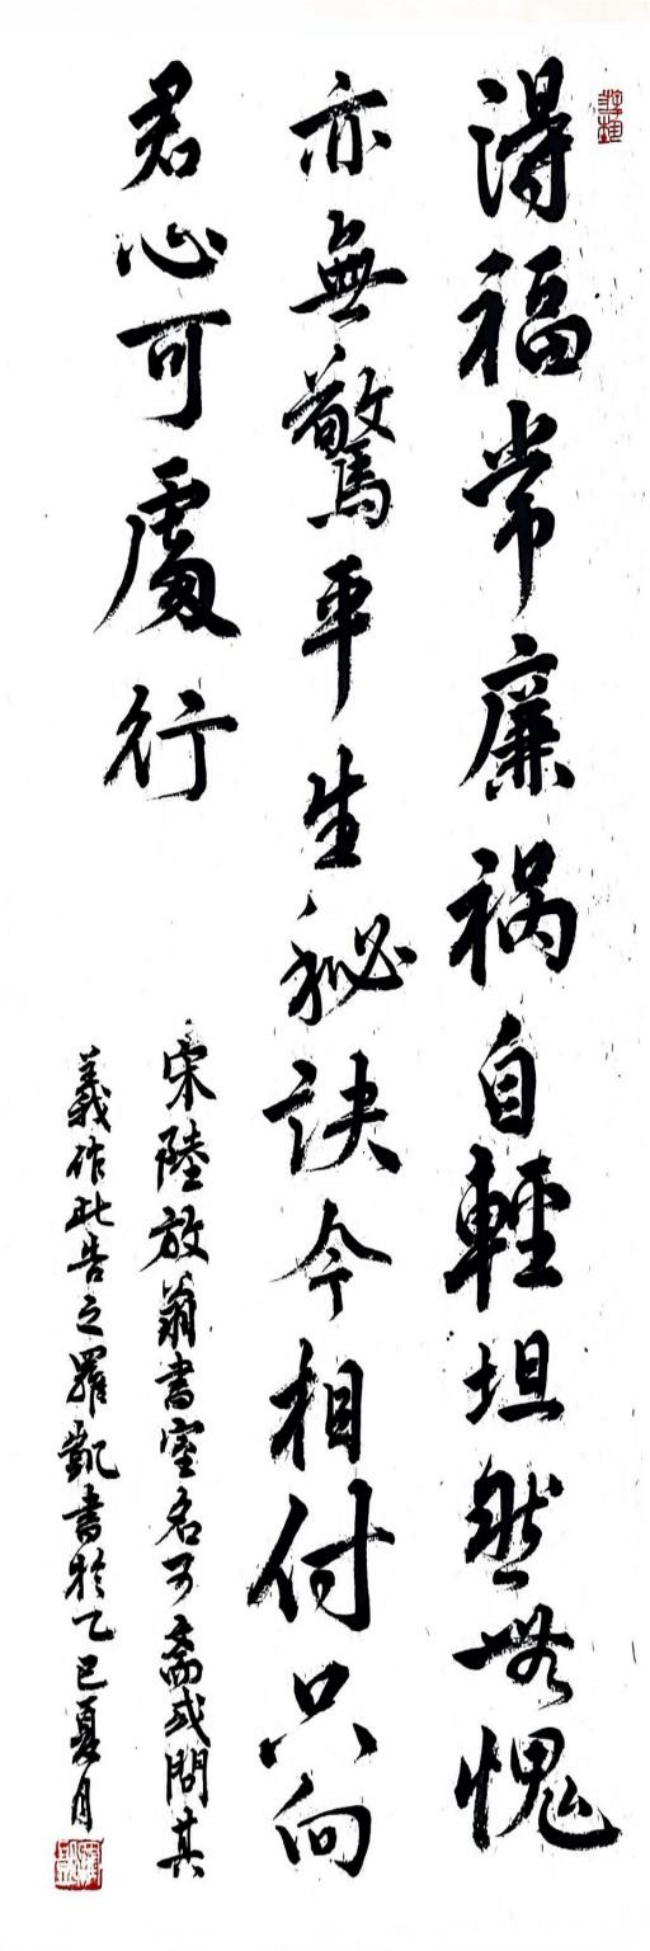 得福常廉祸自輕坦然無愧
亦無驚平生秘訣今相付只向
君心可處行
宋陸放翁書室名可齋或問其
義作此告之羅凱書於乙巳夏月